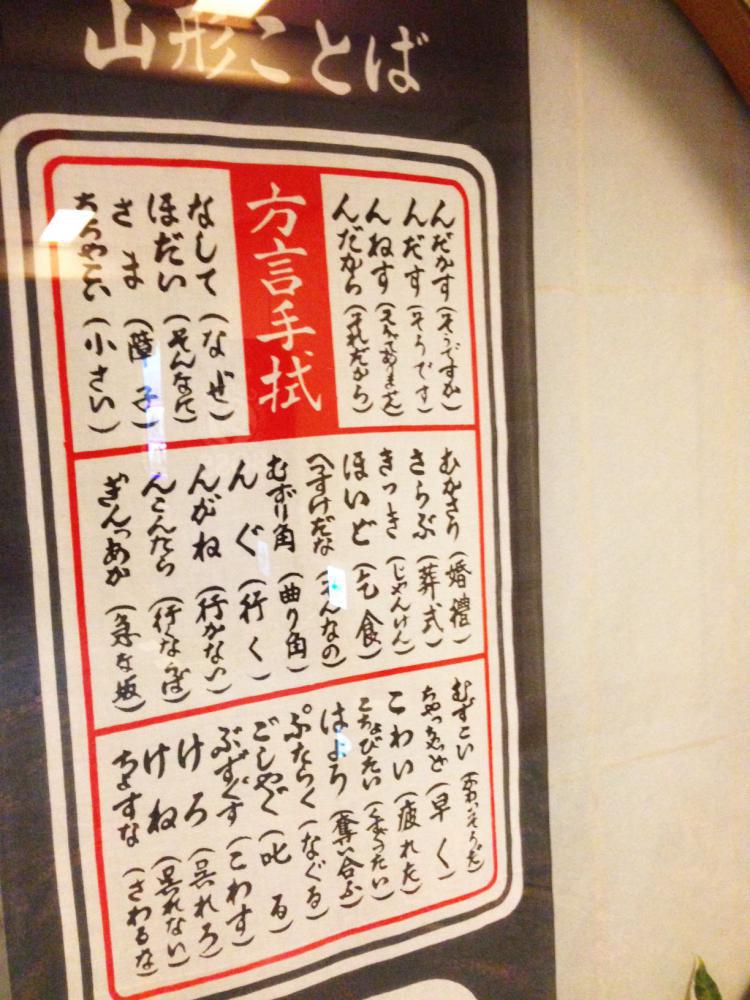 山形ことば
んだかす(そうですか)
んだす(そうです)
んねす(そんでありません)
んだから(それだから)
方言手拭
なして(なぜ)
ほだい(そんなに)
さま(障子)
ちちゃこい(小さい)
むかさり(婚禮)
さらぶ(葬式)
きっき(じゃんけん)
ほいど(乞食)
へすけだな(そんなの)
むずり角(曲り角)
んぐ(行く)
んがね(行かない)
んこんたら(行なくば)
ぎんつあか(急な坂)
むずこい(かわいそうだ)
ちゃっちゃど(早く)
こわい(疲れた)
こちょびたい(くすぐったい)
はよろ(奪い合ふ)
ぷたらく(なぐる)
ごしゃぐ(叱る)
ぶずぐす(こわす)
けろ(呉れろ)
けね(呉れない)
ちょすな(さわるな)